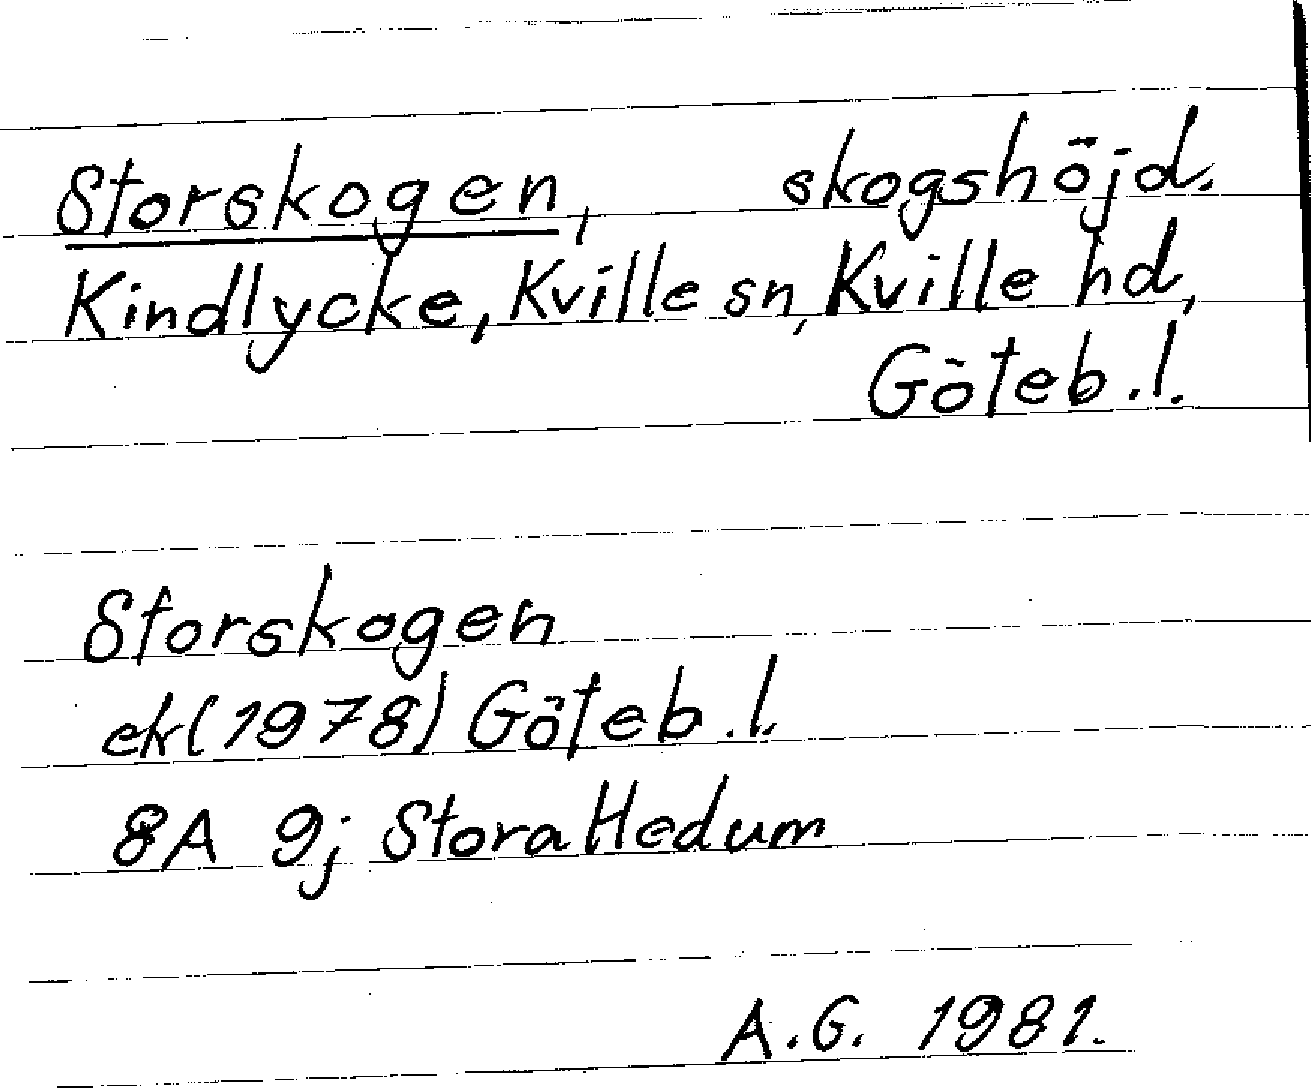 Storskogen, skogshöjd.
Kindlycke, Kville sn, Kville hd,
Göteb.l.
Storskogen
ek (1978) Göteb.l.
8A 9j Stora Hedum
A.G. 1981.